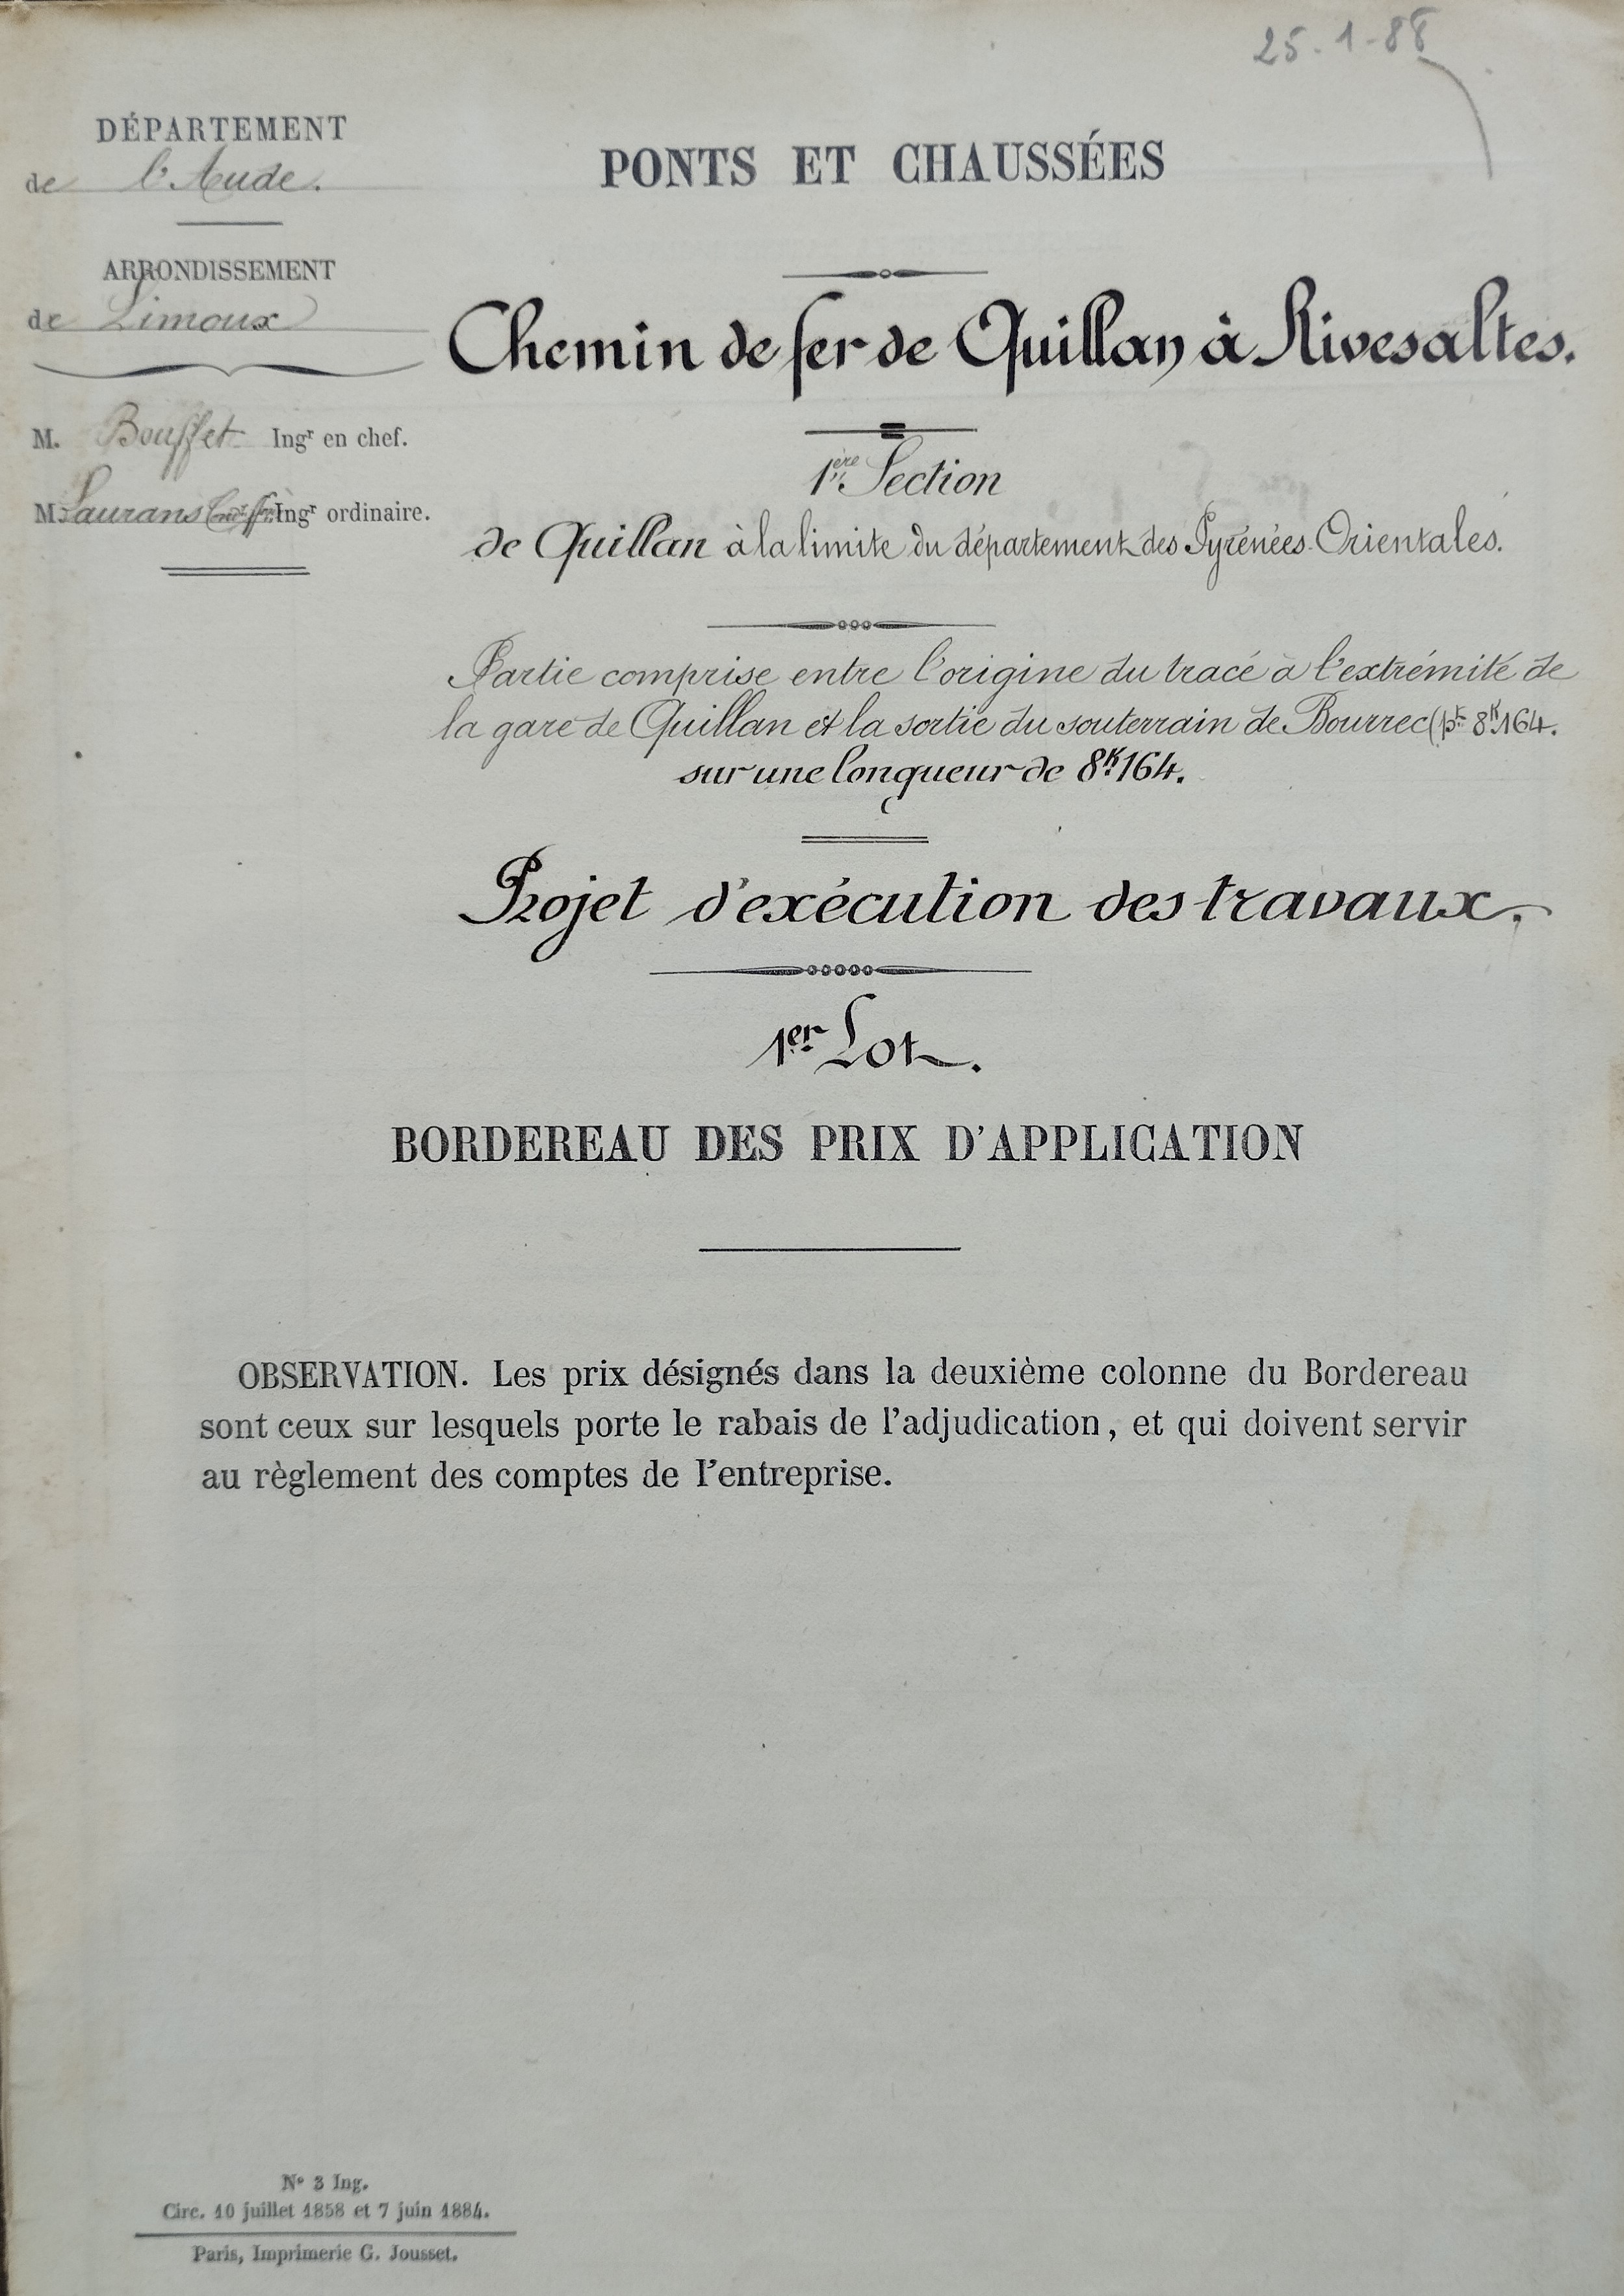 25-1-88
DÉPARTEMENT
de l'Aude.
ARRONDISSEMENT
de Limoux
M. Bouffet Ingr en chef.
M. Laurans Ingr ordinaire.
PONTS ET CHAUSSÉES
Chemin de fer de Quillan à Rivesaltes.
1ère Section
de Quillan à la limite du département des Pyrénées-Orientales.
Partie comprise entre l'origine du tracé à l'extrémité de
la gare de Quillan et la sortie du souterrain de Bourrec (pt 8K164.
sur une longueur de 8K164.
Projet d'exécution des travaux.
1er Lot.
BORDEREAU DES PRIX D'APPLICATION
OBSERVATION. Les prix désignés dans la deuxième colonne du Bordereau
sont ceux sur lesquels porte le rabais de l'adjudication, et qui doivent servir
au règlement des comptes de l'entreprise.
No 3 Ing.
Circ. 10 juillet 1858 et 7 juin 1884.
Paris, Imprimerie G. Jousset.